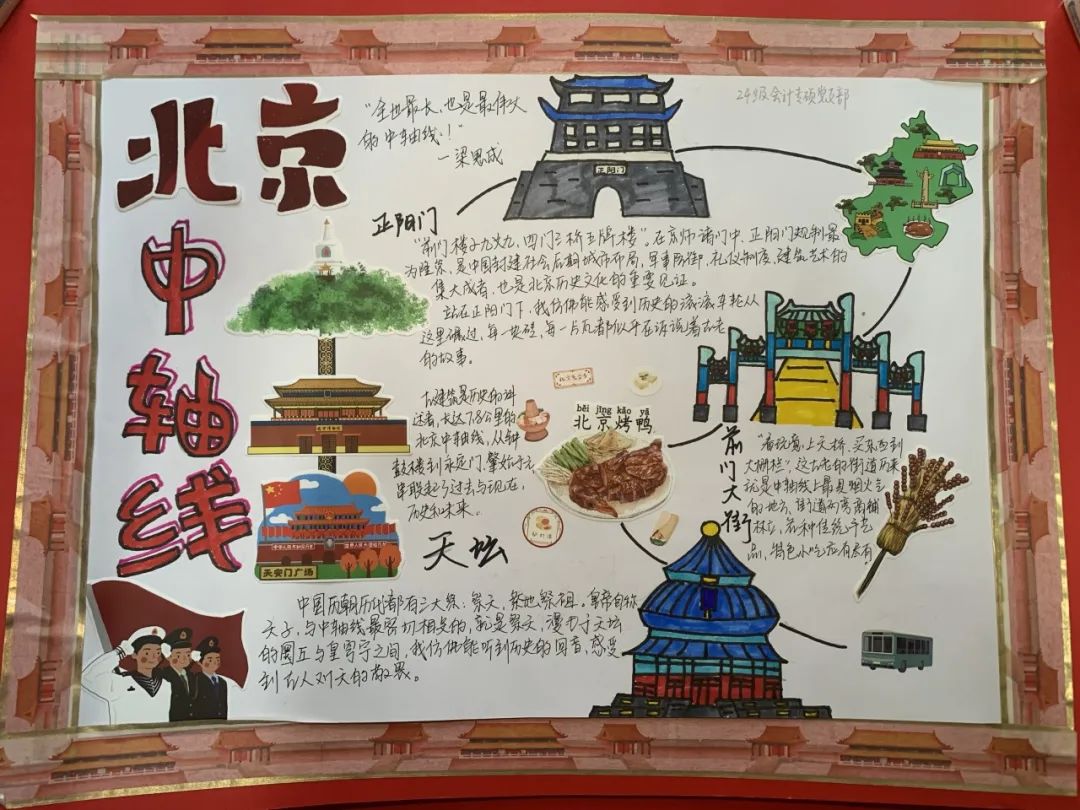 北京
中
轴
线
24级会计专硕党支部
"全世最长,也是最伟大
的中轴线!"
—梁思成
正阳门
正阳门
"前门楼子九丈九,四门三桥五牌楼"。在京师诸门中,正阳门规制最
为隆崇,是中国封建社会后期城市布局,军事防御,礼仪制度,建筑艺术的
集大成者,也是北京历史文化的重要见证。
站在正阳门下,我仿佛能感受到历史的滚滚车轮从
这里碾过,每一块砖,每一片瓦都似乎在诉说着古老
的故事。
古建筑是历史的讲
述者,长达7.8公里的
北京中轴线,从钟
鼓楼到永定门,肇始于元
串联起了过去与现在,
历史和未来。
běi jīng kǎo yā
北京烤鸭
前门大街
"看玩意上天桥,买东西到
大栅栏",这古老的街道历来
就是中轴线上最具烟火气
的地方,街道两旁商铺
林立,各种传统手艺
品,特色小吃应有尽有
天安门广场
天坛
中国历朝历代都有三大祭,祭天,祭地祭祖。皇帝自称
天子,与中轴线最密切相关的,就是祭天,漫步于天坛
的圜丘与皇穹宇之间,我仿佛能听到历史的回音,感受
到古人对天的敬畏。